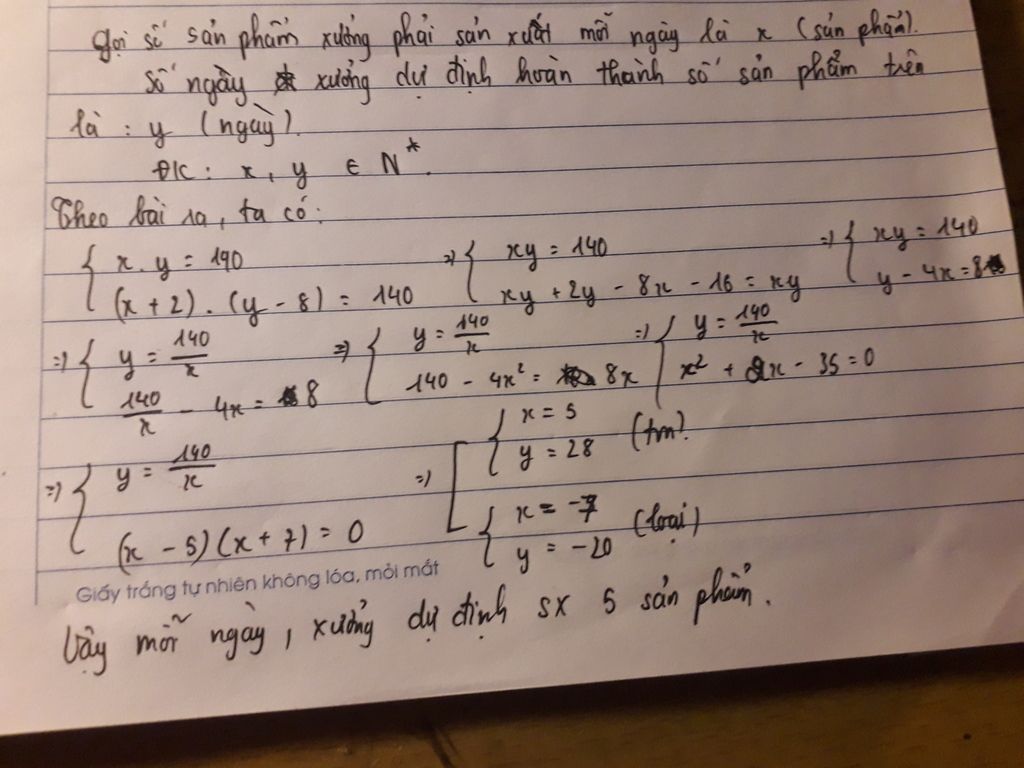 Gọi số sản phẩm xưởng phải sản xuất mỗi ngày là x (sản phẩm).
Số ngày xưởng dự định hoàn thành số sản phẩm trên
là : y (ngày).
ĐK : x, y ∈ N*.
Theo bài ra, ta có :
{ x. y = 140 => { xy = 140 => { xy = 140
(x + 2) . (y - 8) = 140 xy + 2y - 8x - 16 = xy y - 4x = 8
=> { y = 140/x => { y = 140/x => { y = 140/x
140/x - 4x = 8 140 - 4x² = 8x x² + 2x - 35 = 0
=> { y = 140/x => [ { x = 5 (tm).
y = 28
(x - 5)(x + 7) = 0 { x = -7 (loại)
y = -20
Giấy trắng tự nhiên không lóa, mỏi mắt
Vậy mỗi ngày, xưởng dự định sx 5 sản phẩm.